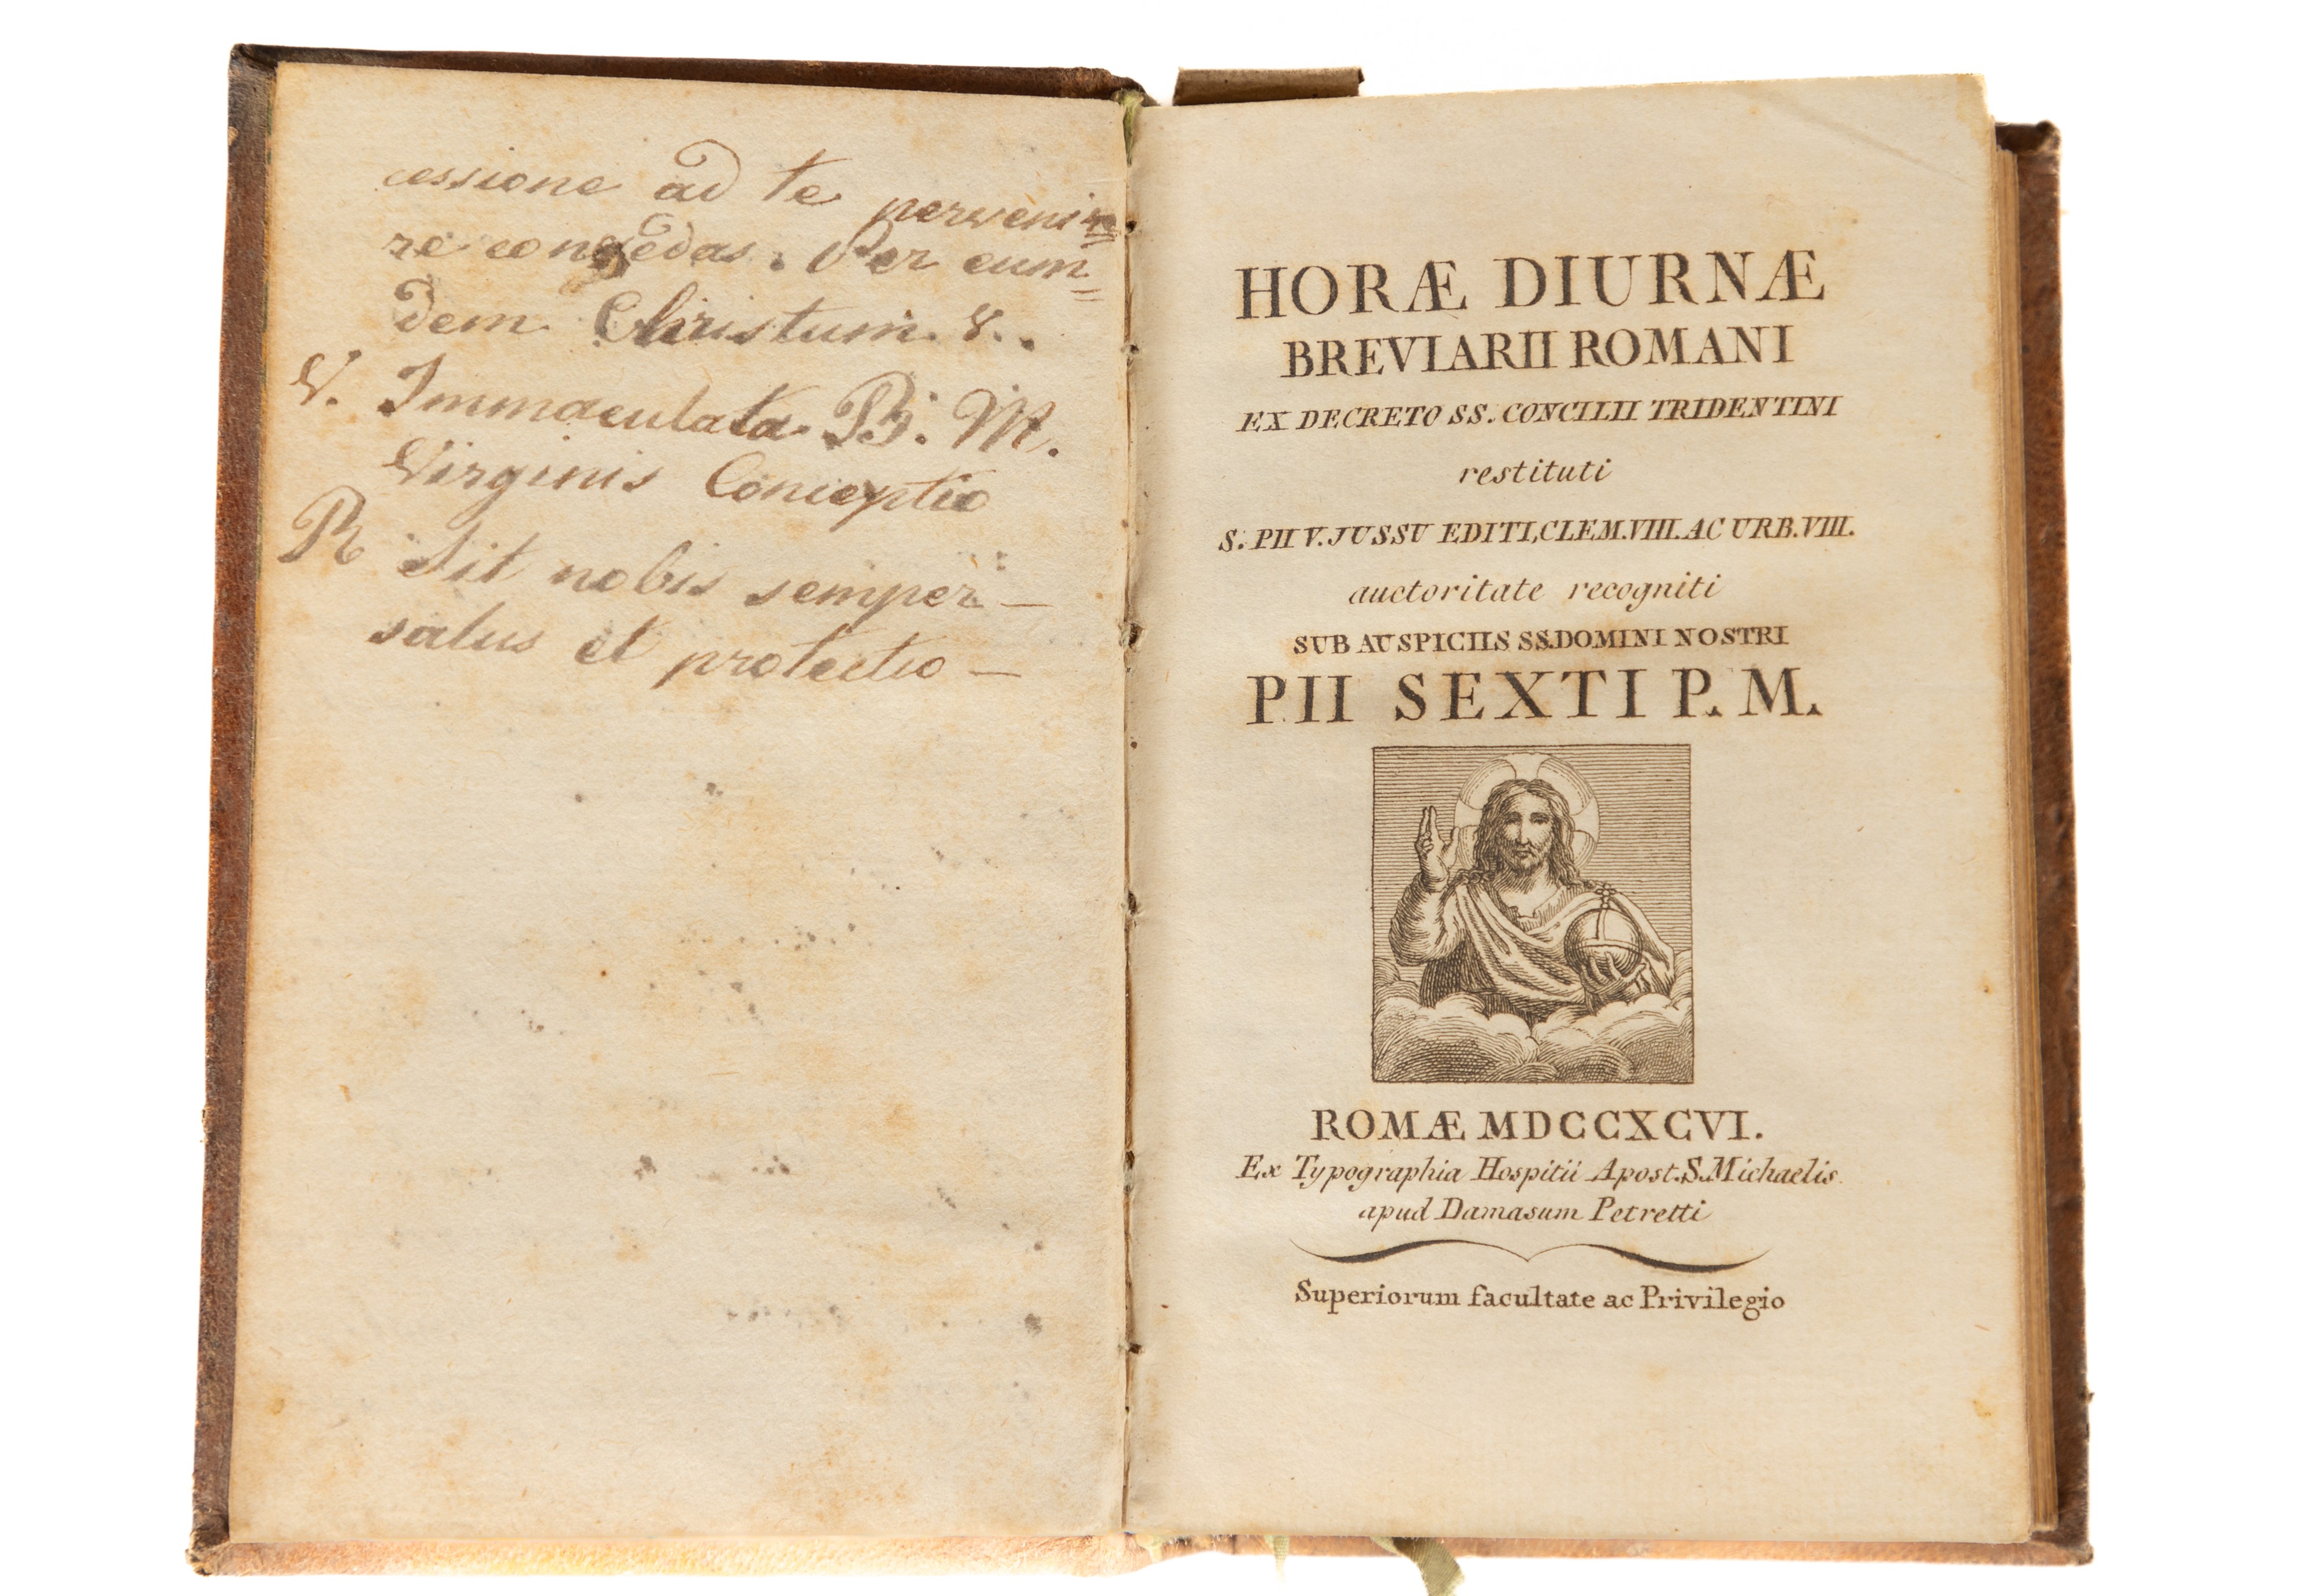 cessione ad te perveni=
re concedas. Per eum=
dem Christum. &.
V. Immaculata B. M.
Virginis Conceptio
R Sit nobis semper —
salus et protectio —
HORÆ DIURNÆ
BREVIARII ROMANI
EX DECRETO SS. CONCILII TRIDENTINI
restituti
S. PII V. JUSSU EDITI, CLEM. VIII. AC URB. VIII.
auctoritate recogniti
SUB AUSPICIIS SS.DOMINI NOSTRI
PII SEXTI P. M.
ROMÆ MDCCXCVI.
Ex Typographia Hospitii Apost. S. Michaelis
apud Damasum Petretti
Superiorum facultate ac Privilegio